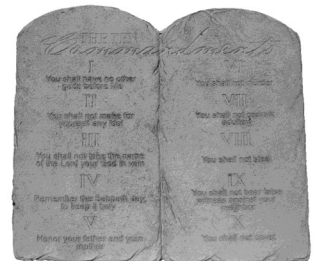 THE TEN
Commandments
I
You shall have no other
gods before me
II
You shall not make for
yourself any idol
III
You shall not take the name
of the Lord your God in vain
IV
Remember the Sabbath day,
to keep it holy
V
Honor your father and your
mother
VI
You shall not murder
VII
You shall not commit
adultery
VIII
You shall not steal
IX
You shall not bear false
witness against your
neighbor
X
You shall not covet